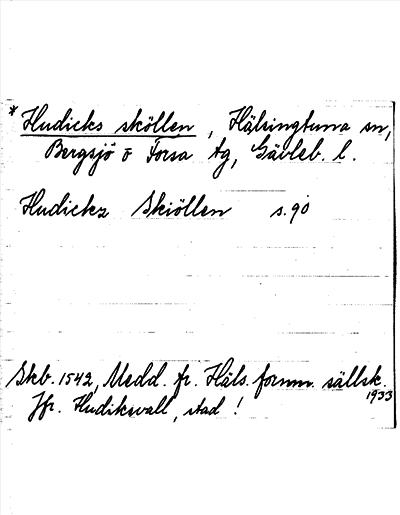 * Hudicks sköllen, Hälsingtuna sn,
Bergsjö o Forsa tg, Gävleb. l.
Hudickz Skiöllen s. 90
Skb. 1542, Medd. fr. Häls. fornm. sällsk. 1933
Jfr. Hudiksvall, stad !